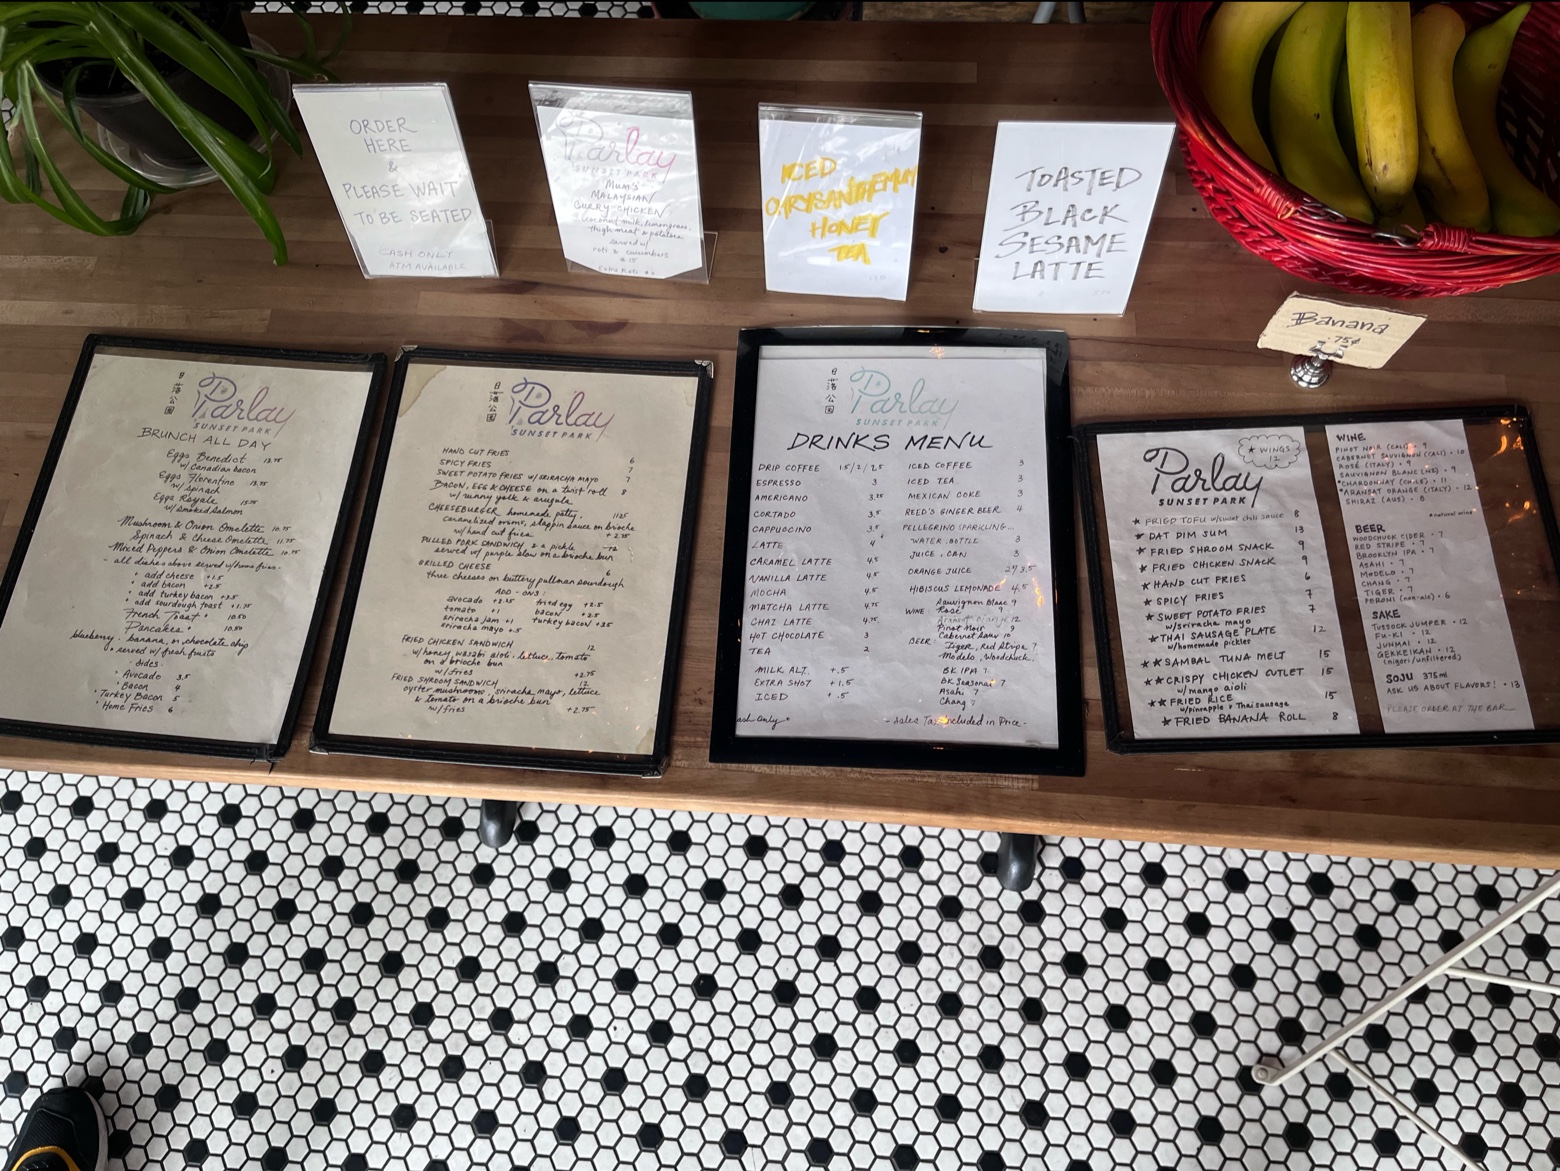 ORDER
HERE
&
PLEASE WAIT
TO BE SEATED
CASH ONLY
ATM AVAILABLE
Parlay
SUNSET PARK
MUM'S
MALAYSIAN
CURRY CHICKEN
coconut milk, lemongrass,
thigh meat & potatoes
served w/
roti & cucumbers
$15
Extra Roti
ICED
CHRYSANTHEMUM
HONEY
TEA
TOASTED
BLACK
SESAME
LATTE
Banana
.75¢
日落公園
Parlay
SUNSET PARK
BRUNCH ALL DAY
Eggs Benedict
w/ Canadian bacon
Eggs Florentine
w/ Spinach
Eggs Royale
w/ Smoked Salmon
Mushroom & Onion Omelette 10.75
Spinach & Cheese Omelette 11.75
Mixed Peppers & Onion Omelette 10.75
- all dishes above served w/ home fries -
• add cheese +1.5
• add bacon +2.5
• add turkey bacon +3.5
• add sourdough toast +1.75
French Toast • 10.50
Pancakes • 10.50
blueberry, banana, or chocolate chip
• served w/ fresh fruits
• Sides:
• Avocado 3.5
• Bacon 4
• Turkey Bacon 5
• Home Fries 6
日落公園
Parlay
SUNSET PARK
HAND CUT FRIES 6
SPICY FRIES 7
SWEET POTATO FRIES w/ SRIRACHA MAYO 7
BACON, EGG & CHEESE on a twist roll 8
w/ runny yolk & arugula
CHEESEBURGER homemade patty, 11.25
caramelized onions, slappin sauce on brioche
w/ hand cut fries +2.75
PULLED PORK SANDWICH & a pickle 12
served w/ purple slaw on a brioche bun
GRILLED CHEESE 6
three cheeses on buttery pullman sourdough
ADD - ONS:
avocado +2.25 fried egg +2.5
tomato +1 bacon +2.5
sriracha jam +1 turkey bacon +3.5
sriracha mayo +.5
FRIED CHICKEN SANDWICH 12
w/ honey, wasabi aioli, lettuce, tomato
on a brioche bun
w/ fries +2.75
FRIED SHROOM SANDWICH 12
oyster mushrooms, sriracha mayo, lettuce
& tomato on a brioche bun
w/ fries +2.75
日落公園
Parlay
SUNSET PARK
DRINKS MENU
DRIP COFFEE 1.5/2/2.5
ESPRESSO 3
AMERICANO 3.25
CORTADO 3.5
CAPPUCCINO 3.5
LATTE 4
CARAMEL LATTE 4.5
VANILLA LATTE 4.5
MOCHA 4.5
MATCHA LATTE 4.75
CHAI LATTE 4.75
HOT CHOCOLATE 3
TEA 2
MILK ALT. +.5
EXTRA SHOT +1.5
ICED +.5
ICED COFFEE 3
ICED TEA 3
MEXICAN COKE 3
REED'S GINGER BEER 4
PELLEGRINO SPARKLING...
WATER: BOTTLE 3
JUICE, CAN 3
ORANGE JUICE 2/3.5
HIBISCUS LEMONADE 4.5
WINE: Sauvignon Blanc 9
Rosé 9
Aransat Orange 12
Pinot Noir 9
Cabernet Sauv 10
BEER: Tiger, Red Stripe 7
Modelo, Woodchuck,
BK IPA 7
BK Seasonal 7
Asahi 7
Chang 7
Cash Only •
- Sales Tax Included in Price -
★ WINGS
12
Parlay
SUNSET PARK
★ FRIED TOFU w/ sweet chili sauce 8
★ DAT DIM SUM 13
★ FRIED SHROOM SNACK 9
★ FRIED CHICKEN SNACK 9
★ HAND CUT FRIES 6
★ SPICY FRIES 7
★ SWEET POTATO FRIES 7
w/ sriracha mayo
★ THAI SAUSAGE PLATE 12
w/ homemade pickles
★★ SAMBAL TUNA MELT 15
★★ CRISPY CHICKEN CUTLET 15
w/ mango aioli
★★ FRIED RICE 15
w/ pineapple & Thai sausage
★ FRIED BANANA ROLL 8
WINE
PINOT NOIR (CALI) • 9
CABERNET SAUVIGNON (CALI) • 10
ROSÉ (ITALY) • 9
SAUVIGNON BLANC (NZ) • 9
*CHARDONNAY (CHILE) • 11
*ARANSAT ORANGE (ITALY) • 12
SHIRAZ (AUS) • 8
*natural wine
BEER
WOODCHUCK CIDER • 7
RED STRIPE • 7
BROOKLYN IPA • 7
ASAHI • 7
MODELO • 7
CHANG • 7
TIGER • 7
PERONI (non-alc) • 6
SAKE
TUSSOCK JUMPER • 12
FU-KI • 12
JUNMAI • 12
GEKKEIKAN • 12
(nigori/unfiltered)
SOJU 375ml
ASK US ABOUT FLAVORS! • 13
PLEASE ORDER AT THE BAR